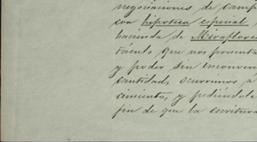 negociaciones de camp
con hipoteca especial
hacienda de Miraflores
táculo que nos presenta
y poder sin inconven
cantidad, ocurrimos á
cimiento, y pidiéndole
fin de que la escritura